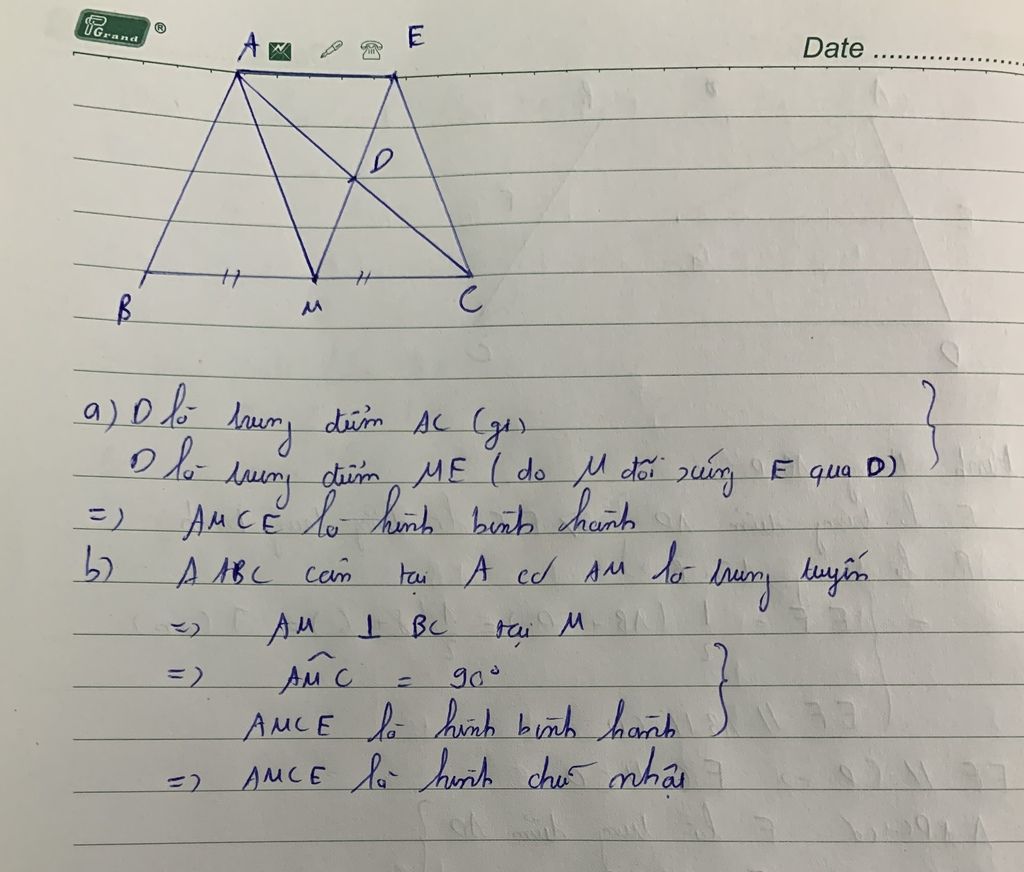 Grand ®
A E Date
D
B M C
a) D là trung điểm AC (gt)
D là trung điểm ME ( do M đối xứng E qua D)
=> AMCE là hình bình hành
b) Δ ABC cân tại A có AM là trung tuyến
=> AM ⊥ BC tại M
=> AMC = 90°
AMCE là hình bình hành
=> AMCE là hình chữ nhật